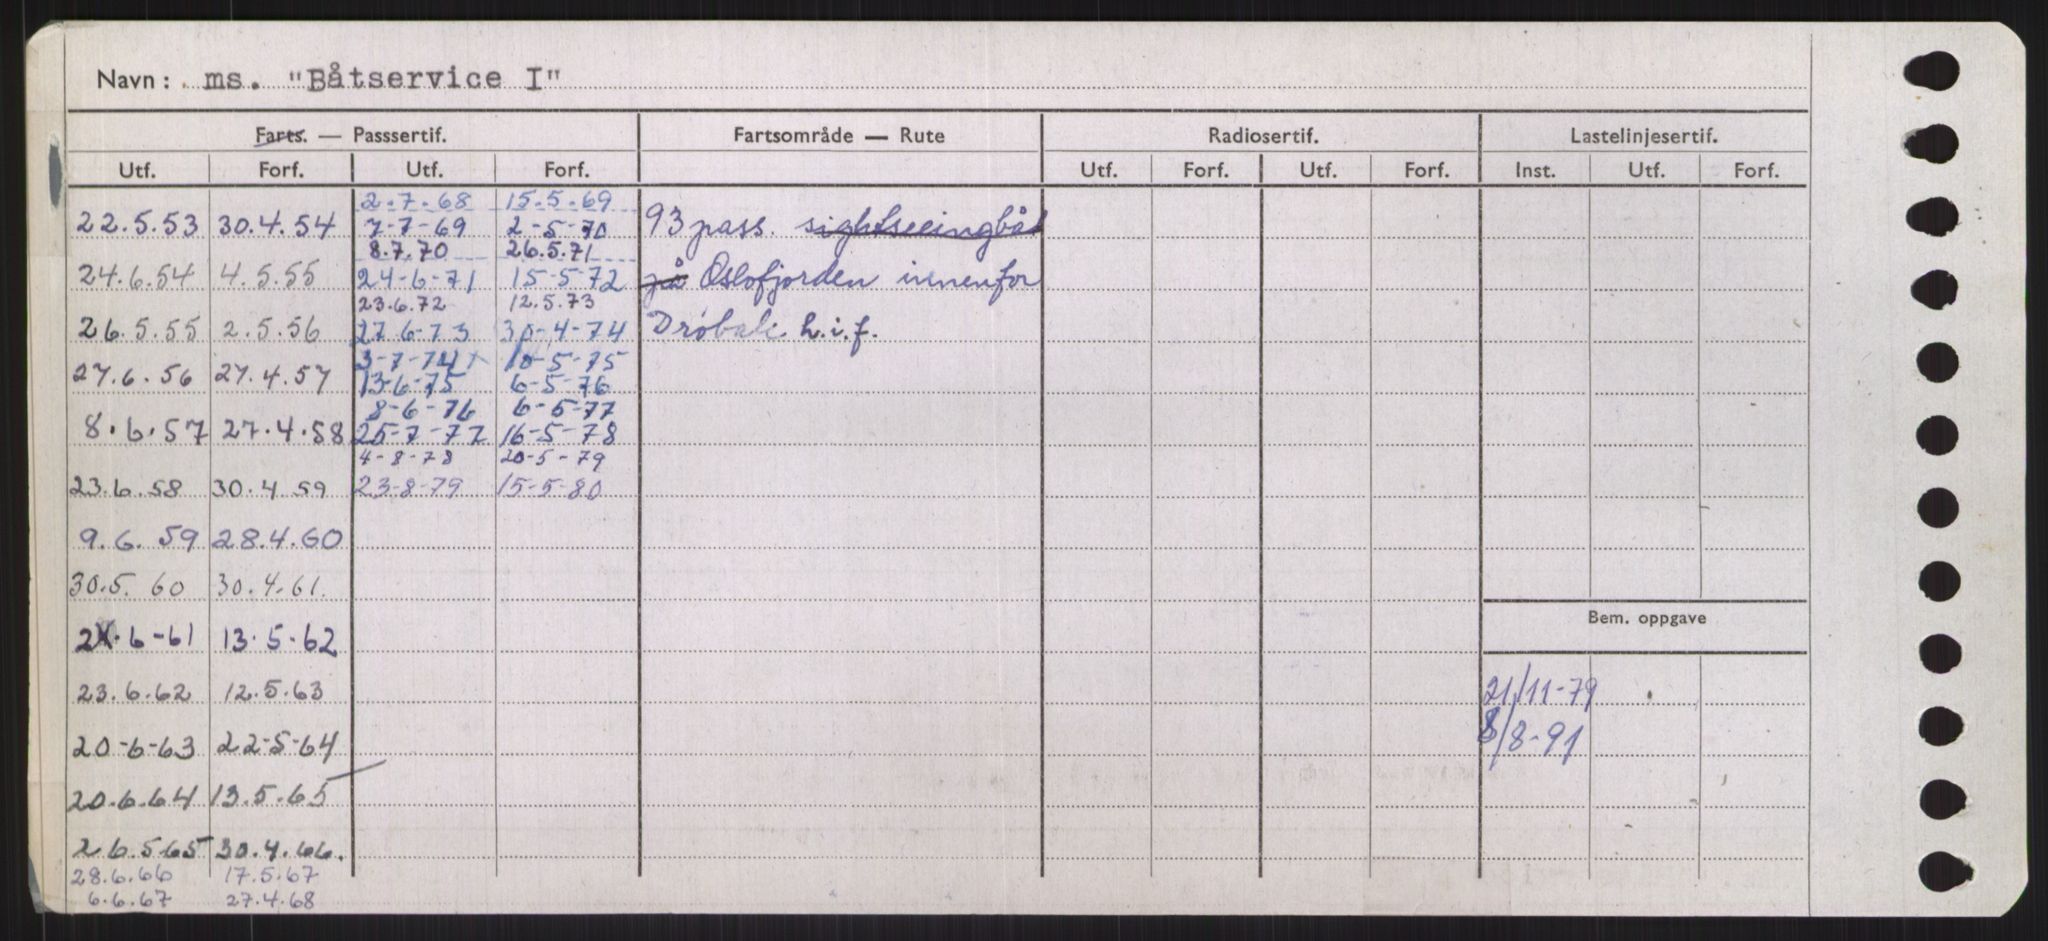 Navn: ms. "Båtservice I"
Farts. — Passsertif. Fartsområde — Rute Radiosertif. Lastelinjesertif.
Utf. Forf. Utf. Forf. Utf. Forf. Utf. Forf. Inst. Utf. Forf.
2.7.68 15.5.69
22.5.53 30.4.54 7-7-69 2-5-70 93 pass. sightseeingbåt
8.7.70 26.5.71
24.6.54 4.5.55 24-6-71 15-5-72 på Oslofjorden innenfor
23.6.72 12.5.73
26.5.55 2.5.56 27-6-73 30-4-74 Drøbak h.i.f.
3-7-74 10-5-75
27.6.56 27.4.57 13-6-75 6-5-76
8-6-76 6-5-77
8.6.57 27.4.58 25-7-77 16-5-78
4-8-78 20-5-79
23.6.58 30.4.59 23-8-79 15-5-80
9.6.59 28.4.60
30.5.60 30.4.61.
6-61 13.5.62
23.6.62 12.5.63
20-6-63 22-5-64
20.6.64 13.5.65
26.5 65 30.4.66.
28.6.66 17.5.67
6.6.67 27.4.68
Bem. oppgave
21/11-79
8/8-91